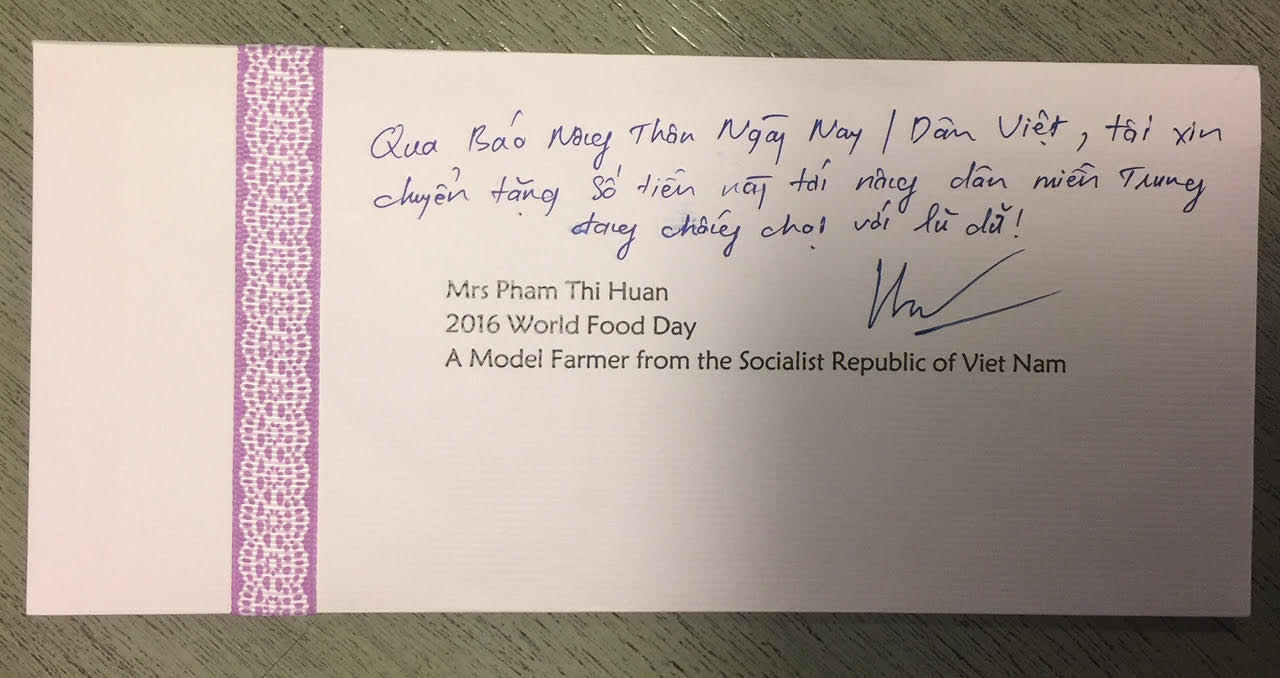 Qua Báo Nông Thôn Ngày Nay / Dân Việt, tôi xin
chuyển tặng số tiền này tới nông dân miền Trung
đang chống chọi với lũ dữ!
Mrs Pham Thi Huan
2016 World Food Day
A Model Farmer from the Socialist Republic of Viet Nam